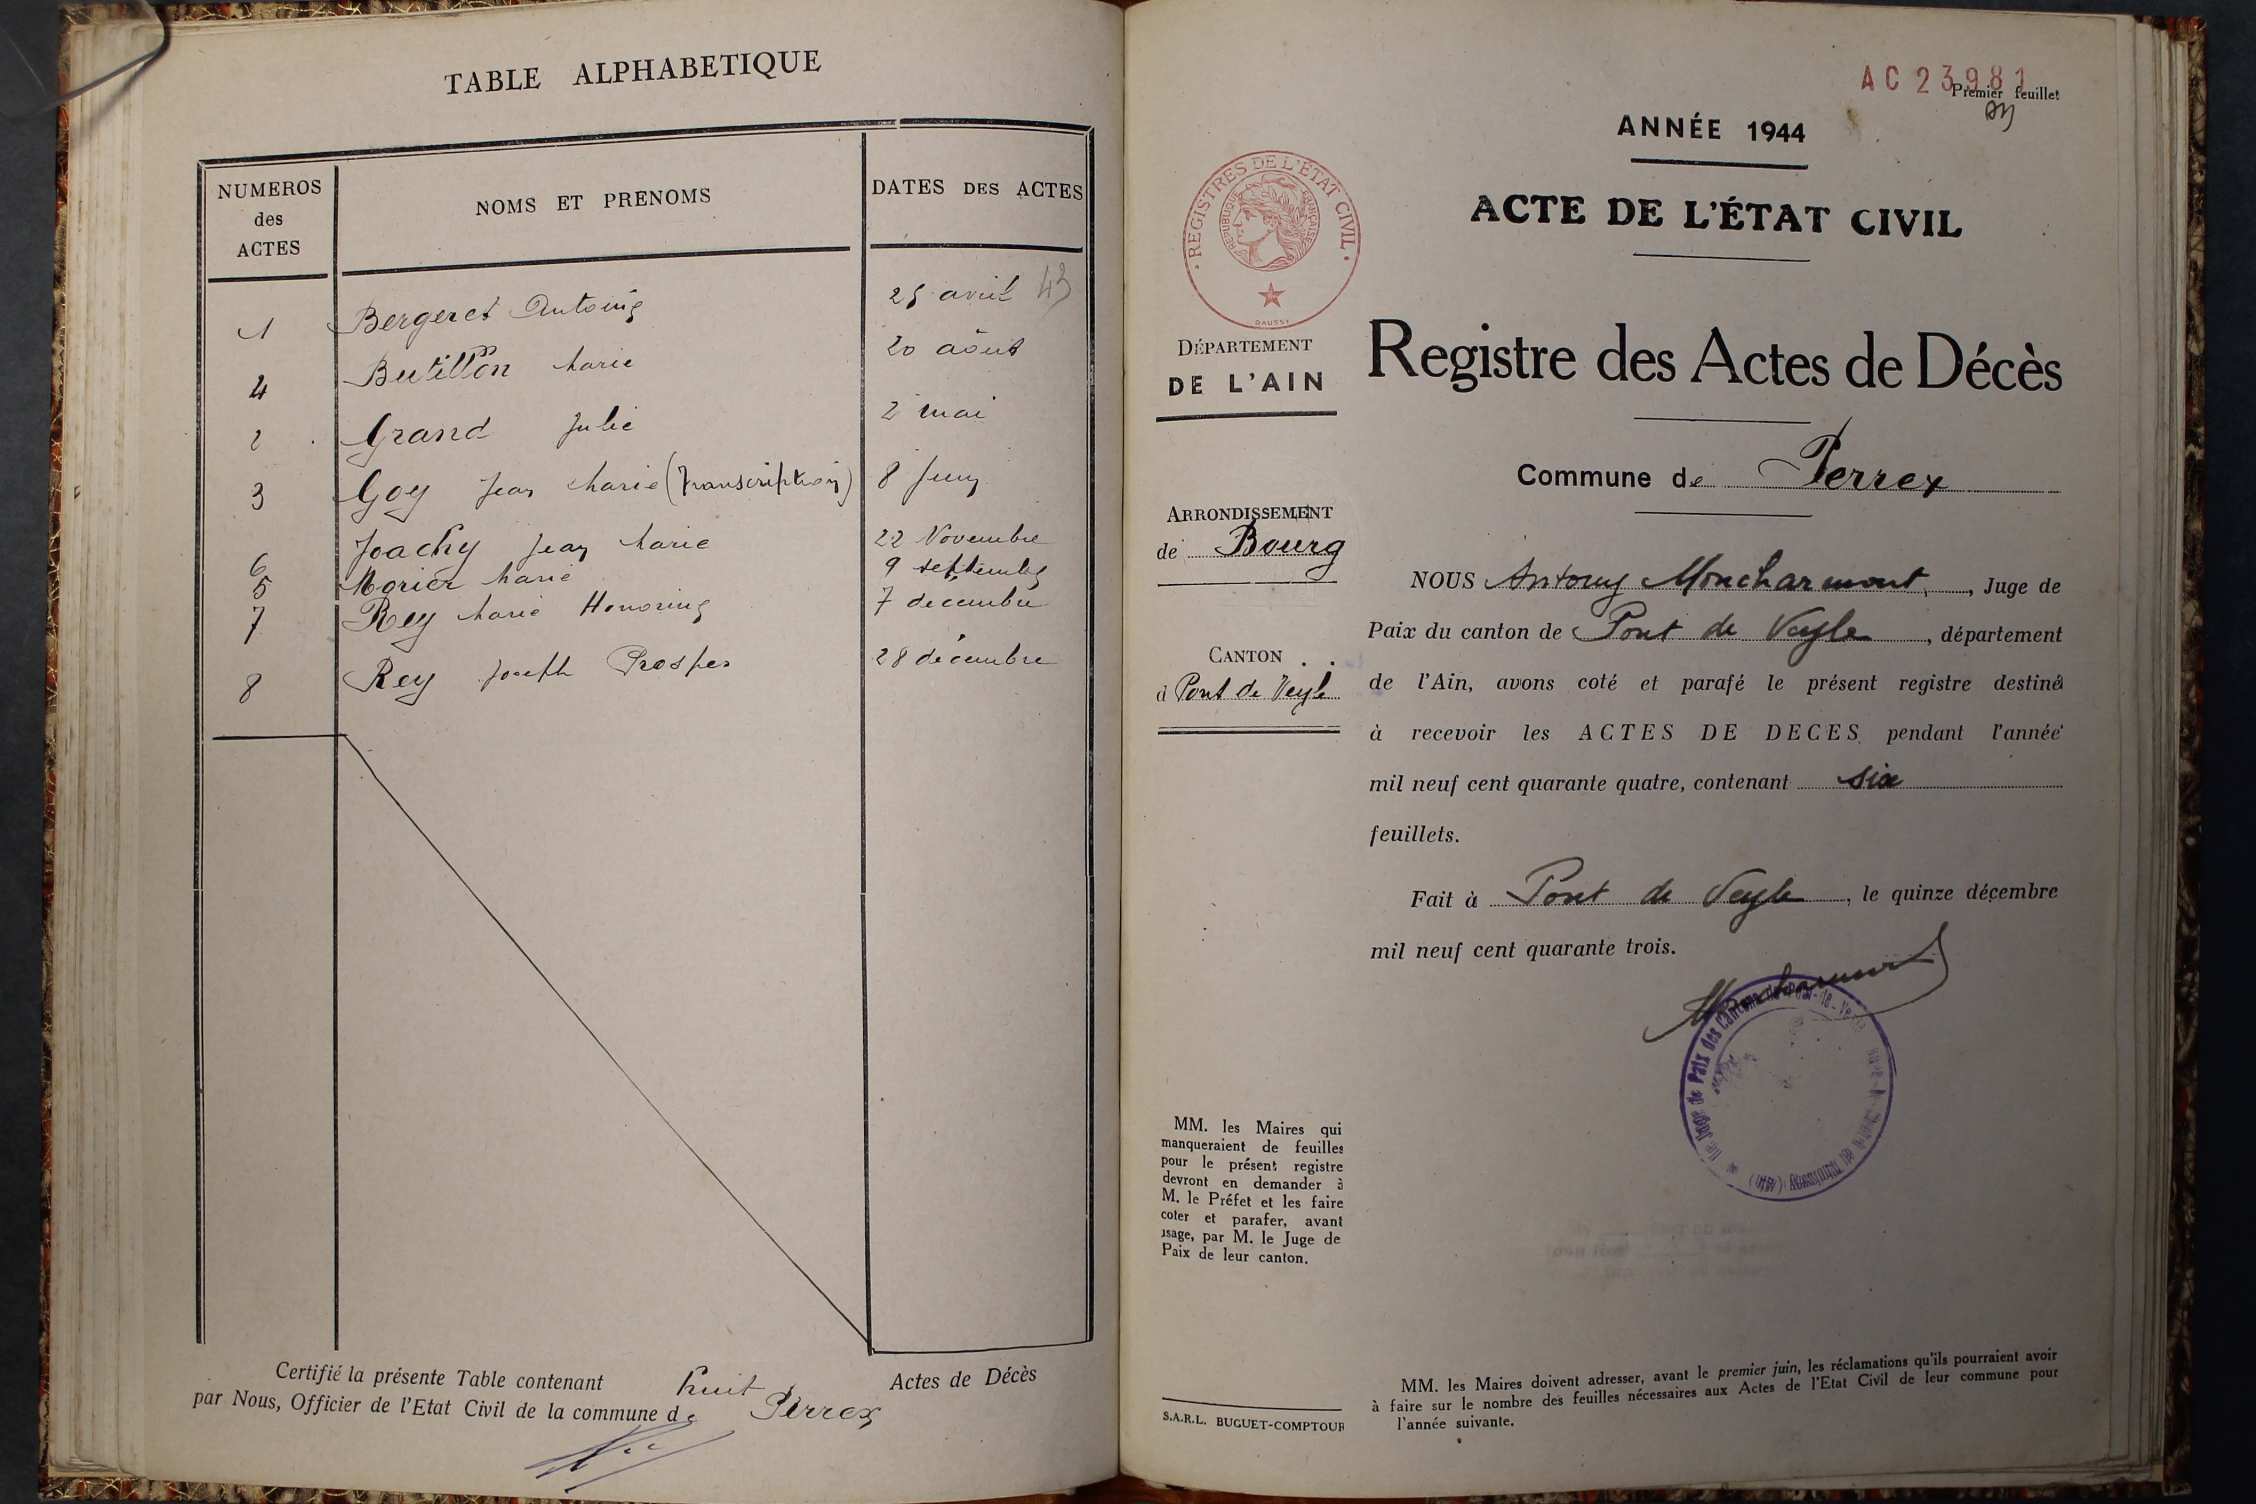 TABLE ALPHABETIQUE
NUMEROS des ACTES
NOMS ET PRENOMS
DATES DES ACTES
1 Bergeret Antoine 25 avril 43
4 Butillon Marie 20 août
2 Grand Julie 2 mai
3 Goy Jean Marie (Transcription) 8 Juin
6 Joachy Jean Marie 22 Novembre
5 Morier Marie 9 septembre
7 Rey Marie Honorine 7 decembre
8 Rey Joseph Prosper 28 décembre
Certifié la présente Table contenant huit Actes de Décès
par Nous, Officier de l'Etat Civil de la commune de Perrex
AC 23981
Premier feuillet
ANNÉE 1944
ACTE DE L'ÉTAT CIVIL
REGISTRES DE L'ÉTAT CIVIL
REPUBLIQUE FRANÇAISE
DAUSSY
DÉPARTEMENT
DE L'AIN
Registre des Actes de Décès
Commune de Perrex
ARRONDISSEMENT
de Bourg
CANTON
à Pont de Veyle
NOUS Antony Moncharmont, Juge de
Paix du canton de Pont de Veyle, département
de l'Ain, avons coté et parafé le présent registre destiné
à recevoir les ACTES DE DECES pendant l'année
mil neuf cent quarante quatre, contenant six
feuillets.
Fait à Pont de Veyle, le quinze décembre
mil neuf cent quarante trois.
Moncharmont
Juge de Paix des Cantons de Pont-de-Veyle
MM. les Maires qui
manqueraient de feuilles
pour le présent registre
devront en demander à
M. le Préfet et les faire
coter et parafer, avant
usage, par M. le Juge de
Paix de leur canton.
S.A.R.L. BUGUET-COMPTOUR
MM. les Maires doivent adresser, avant le premier juin, les réclamations qu'ils pourraient avoir
à faire sur le nombre des feuilles nécessaires aux Actes de l'Etat Civil de leur commune pour
l'année suivante.